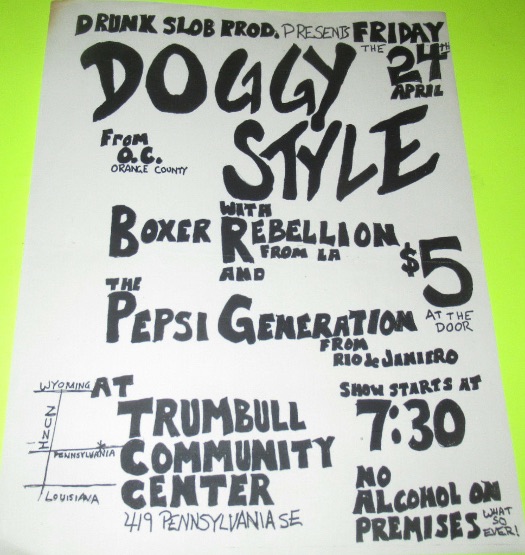 DRUNK SLOB PROD. PRESENTS FRIDAY
THE 24TH
APRIL
DOGGY
STYLE
FROM
O.C.
ORANGE COUNTY
WITH
BOXER REBELLION
FROM LA
AND
$5
AT THE
DOOR
THE
PEPSI GENERATION
FROM
RIO de JANIERO
AT
TRUMBULL
COMMUNITY
CENTER
419 PENNSYLVANIA SE
WYOMING
PENNSYLVANIA
LOUISIANA
SHOW STARTS AT
7:30
NO
ALCOHOL ON
PREMISES WHAT
SO
EVER!